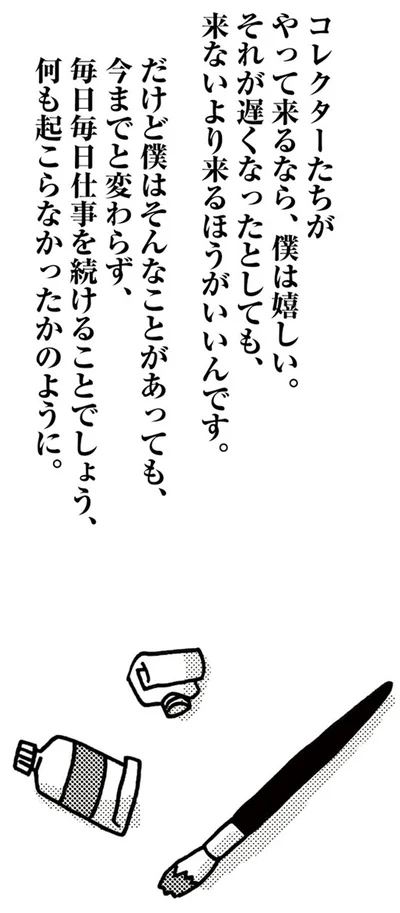 コレクターたちが
やって来るなら、僕は嬉しい。
それが遅くなったとしても、
来ないより来るほうがいいんです。
だけど僕はそんなことがあっても、
今までと変わらず、
毎日毎日仕事を続けることでしょう、
何も起こらなかったかのように。